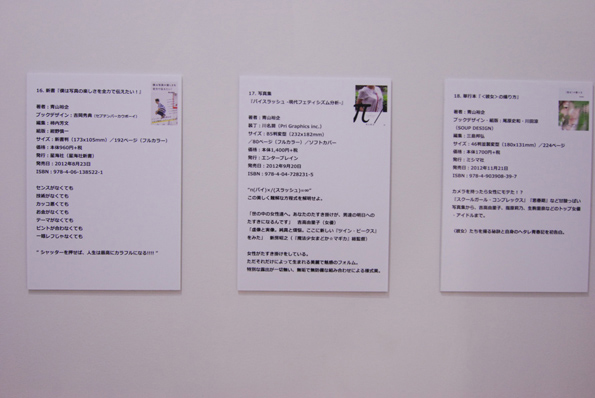 16. 新書『僕は写真の楽しさを全力で伝えたい！』
著者：青山裕企
ブックデザイン：吉岡秀典（セプテンバーカウボーイ）
編集：柿内芳文
紙面：紺野慎一
サイズ：新書判（173x105mm）／192ページ（フルカラー）
価格：本体960円+税
発行：星海社（星海社新書）
発売日：2012年8月23日
ISBN：978-4-06-138522-1
センスがなくても
技術がなくても
カッコ悪くても
お金がなくても
テーマがなくても
ピントが合わなくても
一眼レフじゃなくても
" シャッターを押せば、人生は最高にカラフルになる!!!! "
17. 写真集
『パイスラッシュ -現代フェティシズム分析-』
著者：青山裕企
装丁：川名潤（Pri Graphics Inc.）
サイズ：B5判変型（232x182mm）
／80ページ（フルカラー）／ソフトカバー
価格：本体1,400円+税
発行：エンターブレイン
発売日：2012年9月20日
ISBN：978-4-04-728231-5
この美しく難解な方程式を解明せよ。
「世の中の女性達へ。あなたのたすき掛けが、男達の明日への
たすきになるんです」 吉高由里子（女優）
「虚像と実像、純真と猥褻。ここに新しい『ツイン・ピークス』
をみた」 新房昭之（『魔法少女まどか☆マギカ』総監督）
女性がたすき掛けをしている。
ただそれだけによって生まれる美麗で魅惑のフォルム。
特別な露出が一切無い、無垢で無防備な組み合わせによる様式美。
18. 単行本『＜彼女＞の撮り方』
著者：青山裕企
ブックデザイン・紙面：尾原史和・川田涼
（SOUP DESIGN）
編集：三島邦弘
サイズ：46判並製変型（180x131mm）／224ページ
価格：本体1700円+税
発行：ミシマ社
発売日：2012年11月21日
ISBN：978-4-903908-39-7
カメラを持ったら女性にモテた！？
『スクールガール・コンプレックス』『思春期』など甘酸っぱい
写真集から、吉高由里子、指原莉乃、生駒里奈などのトップ女優
・アイドルまで。
〈彼女〉たちを撮る秘訣と自身のヘタレ青春記を初告白。